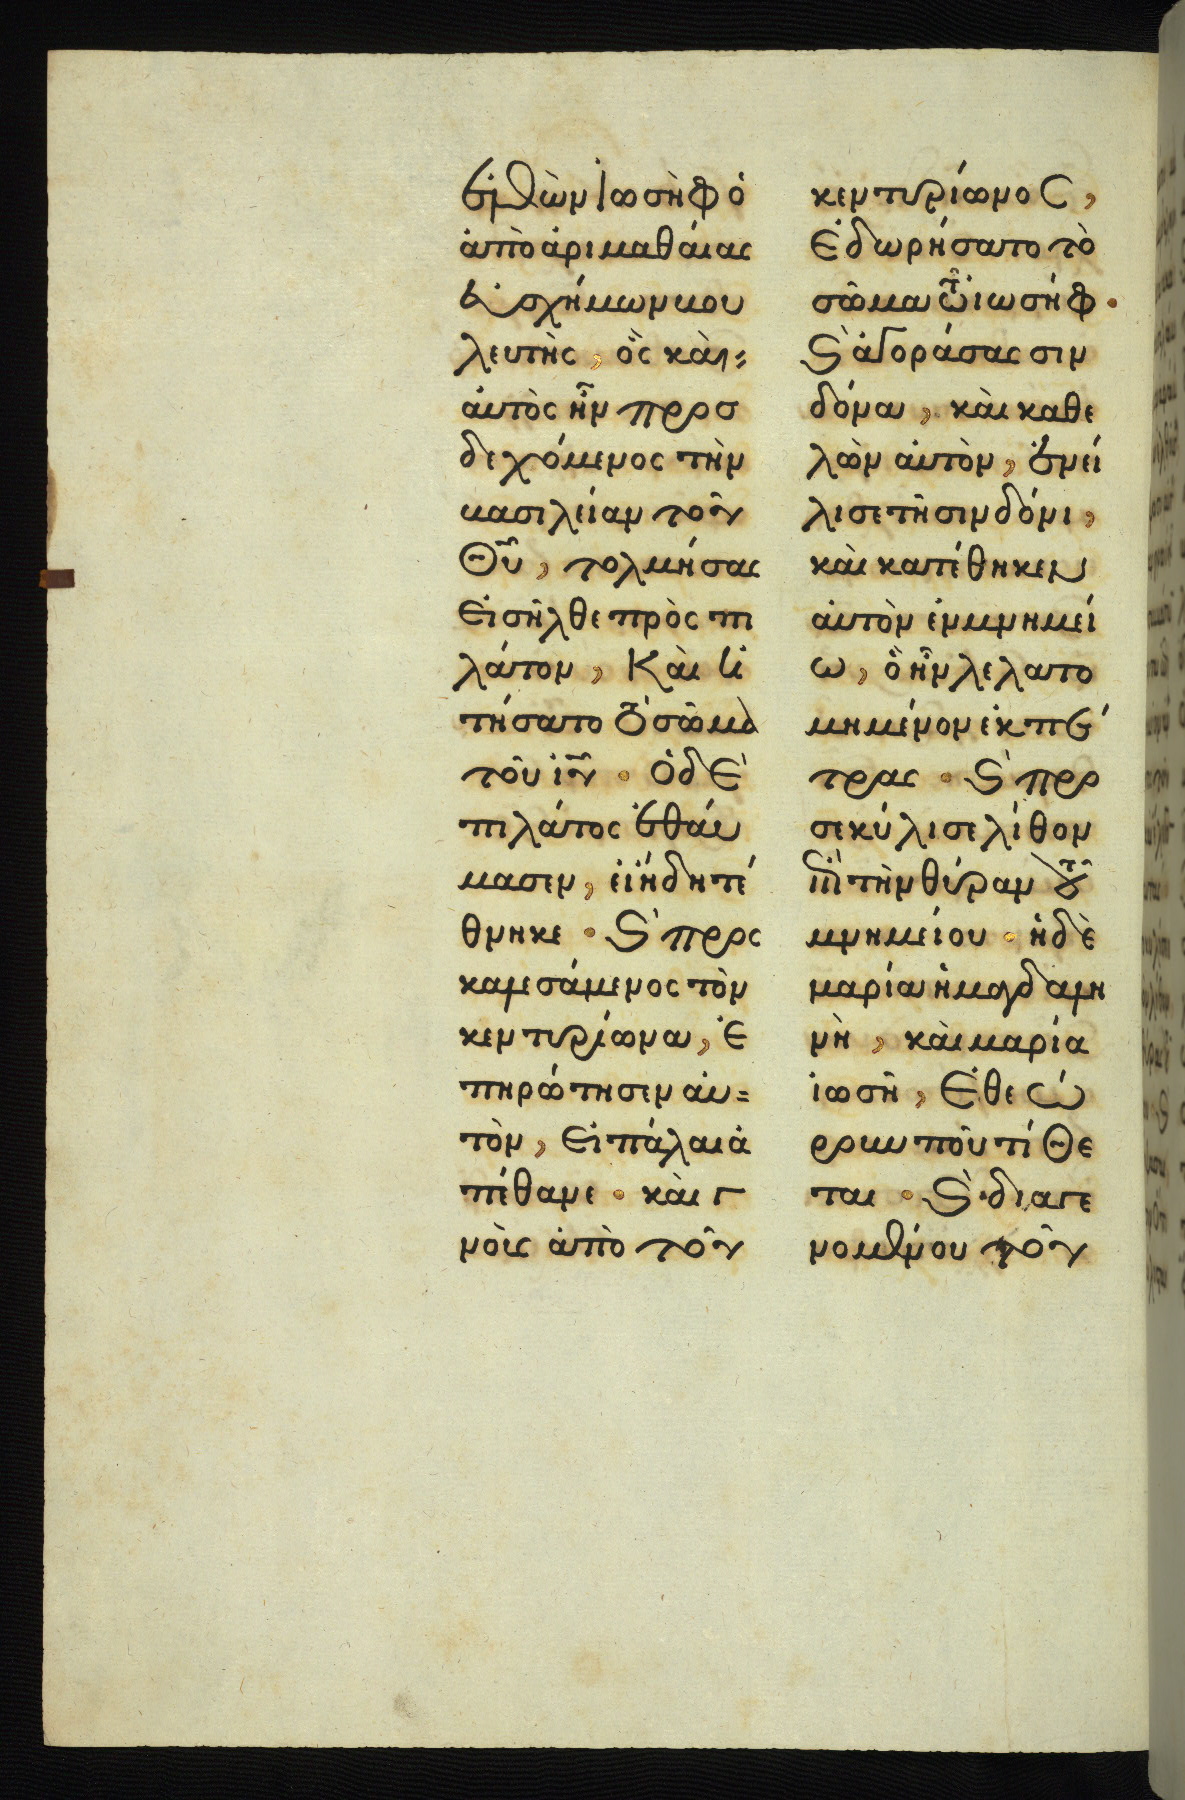 ελθὼν Ἰωσὴφ ὁ
ἀπὸ ἀριμαθάιας
ἐυσχήμων βου
λευτὴς, ὃς κὰι
ἀυτὸς ἦν προσ
δεχόμενος τὴν
βασιλείαν τοῦ
Θῦ, τολμήσας
Εἰσῆλθε πρὸς πι
λάτον, Κὰι ἠ
τήσατο τὸ σῶμα
τοῦ ἰῦ · Ὁ δὲ
πιλάτος ἐθάυ
μασεν, ἐι ἤδη τέ
θνηκε · Ϛ̀ προς
καλεσάμενος τὸν
κεντυρίωνα, Ἐ
πηρώτησεν ἀυ=
τὸν, Εἰ πάλαι ἀ
πέθανε · κὰι γ
νοὺς ἀπὸ τοῦ
κεντυρίωνος,
Ἐδωρήσατο τὸ
σῶμα τῶ ἰωσήφ ·
Ϛ̀ ἀγοράσας σιν
δόνα, κὰι καθε
λὼν ἀυτὸν, ἐνεί
λισε τῆ σινδόνι,
κὰι κατέθηκεν
ἀυτὸν ἐν μνημεί
ω, ὃ ἦν λελατο
μημένον ἐκ πέ
τρας · Ϛ̀ προ
σεκύλισε λίθον
ἐπὶ τὴν θύραν τοῦ
μνημείου · ἡ δὲ
μαρία ἡ μαγδαλη
νὴ, κὰι μαρία
ἰωσῆ, Ἐθεώ
ρουν ποῦ τίθε
ται · Ϛ̀ διαγε
νομένου τοῦ